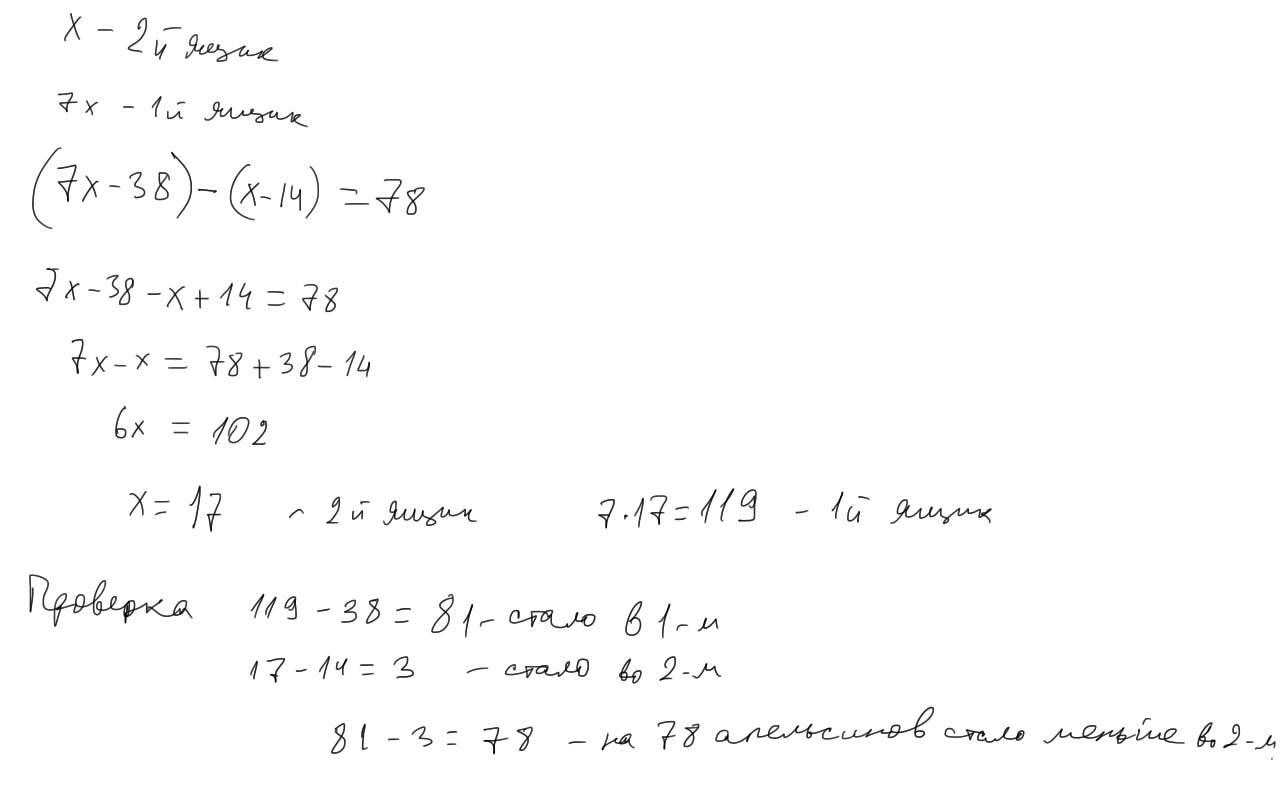 x - 2й ящик
7x - 1й ящик
(7x-38)-(x-14)=78
7x-38-x+14=78
7x-x=78+38-14
6x=102
x=17 - 2й ящик 7·17=119 - 1й ящик
Проверка 119-38=81- стало в 1-м
17-14=3 - стало во 2-м
81-3=78 - на 78 апельсинов стало меньше во 2-м